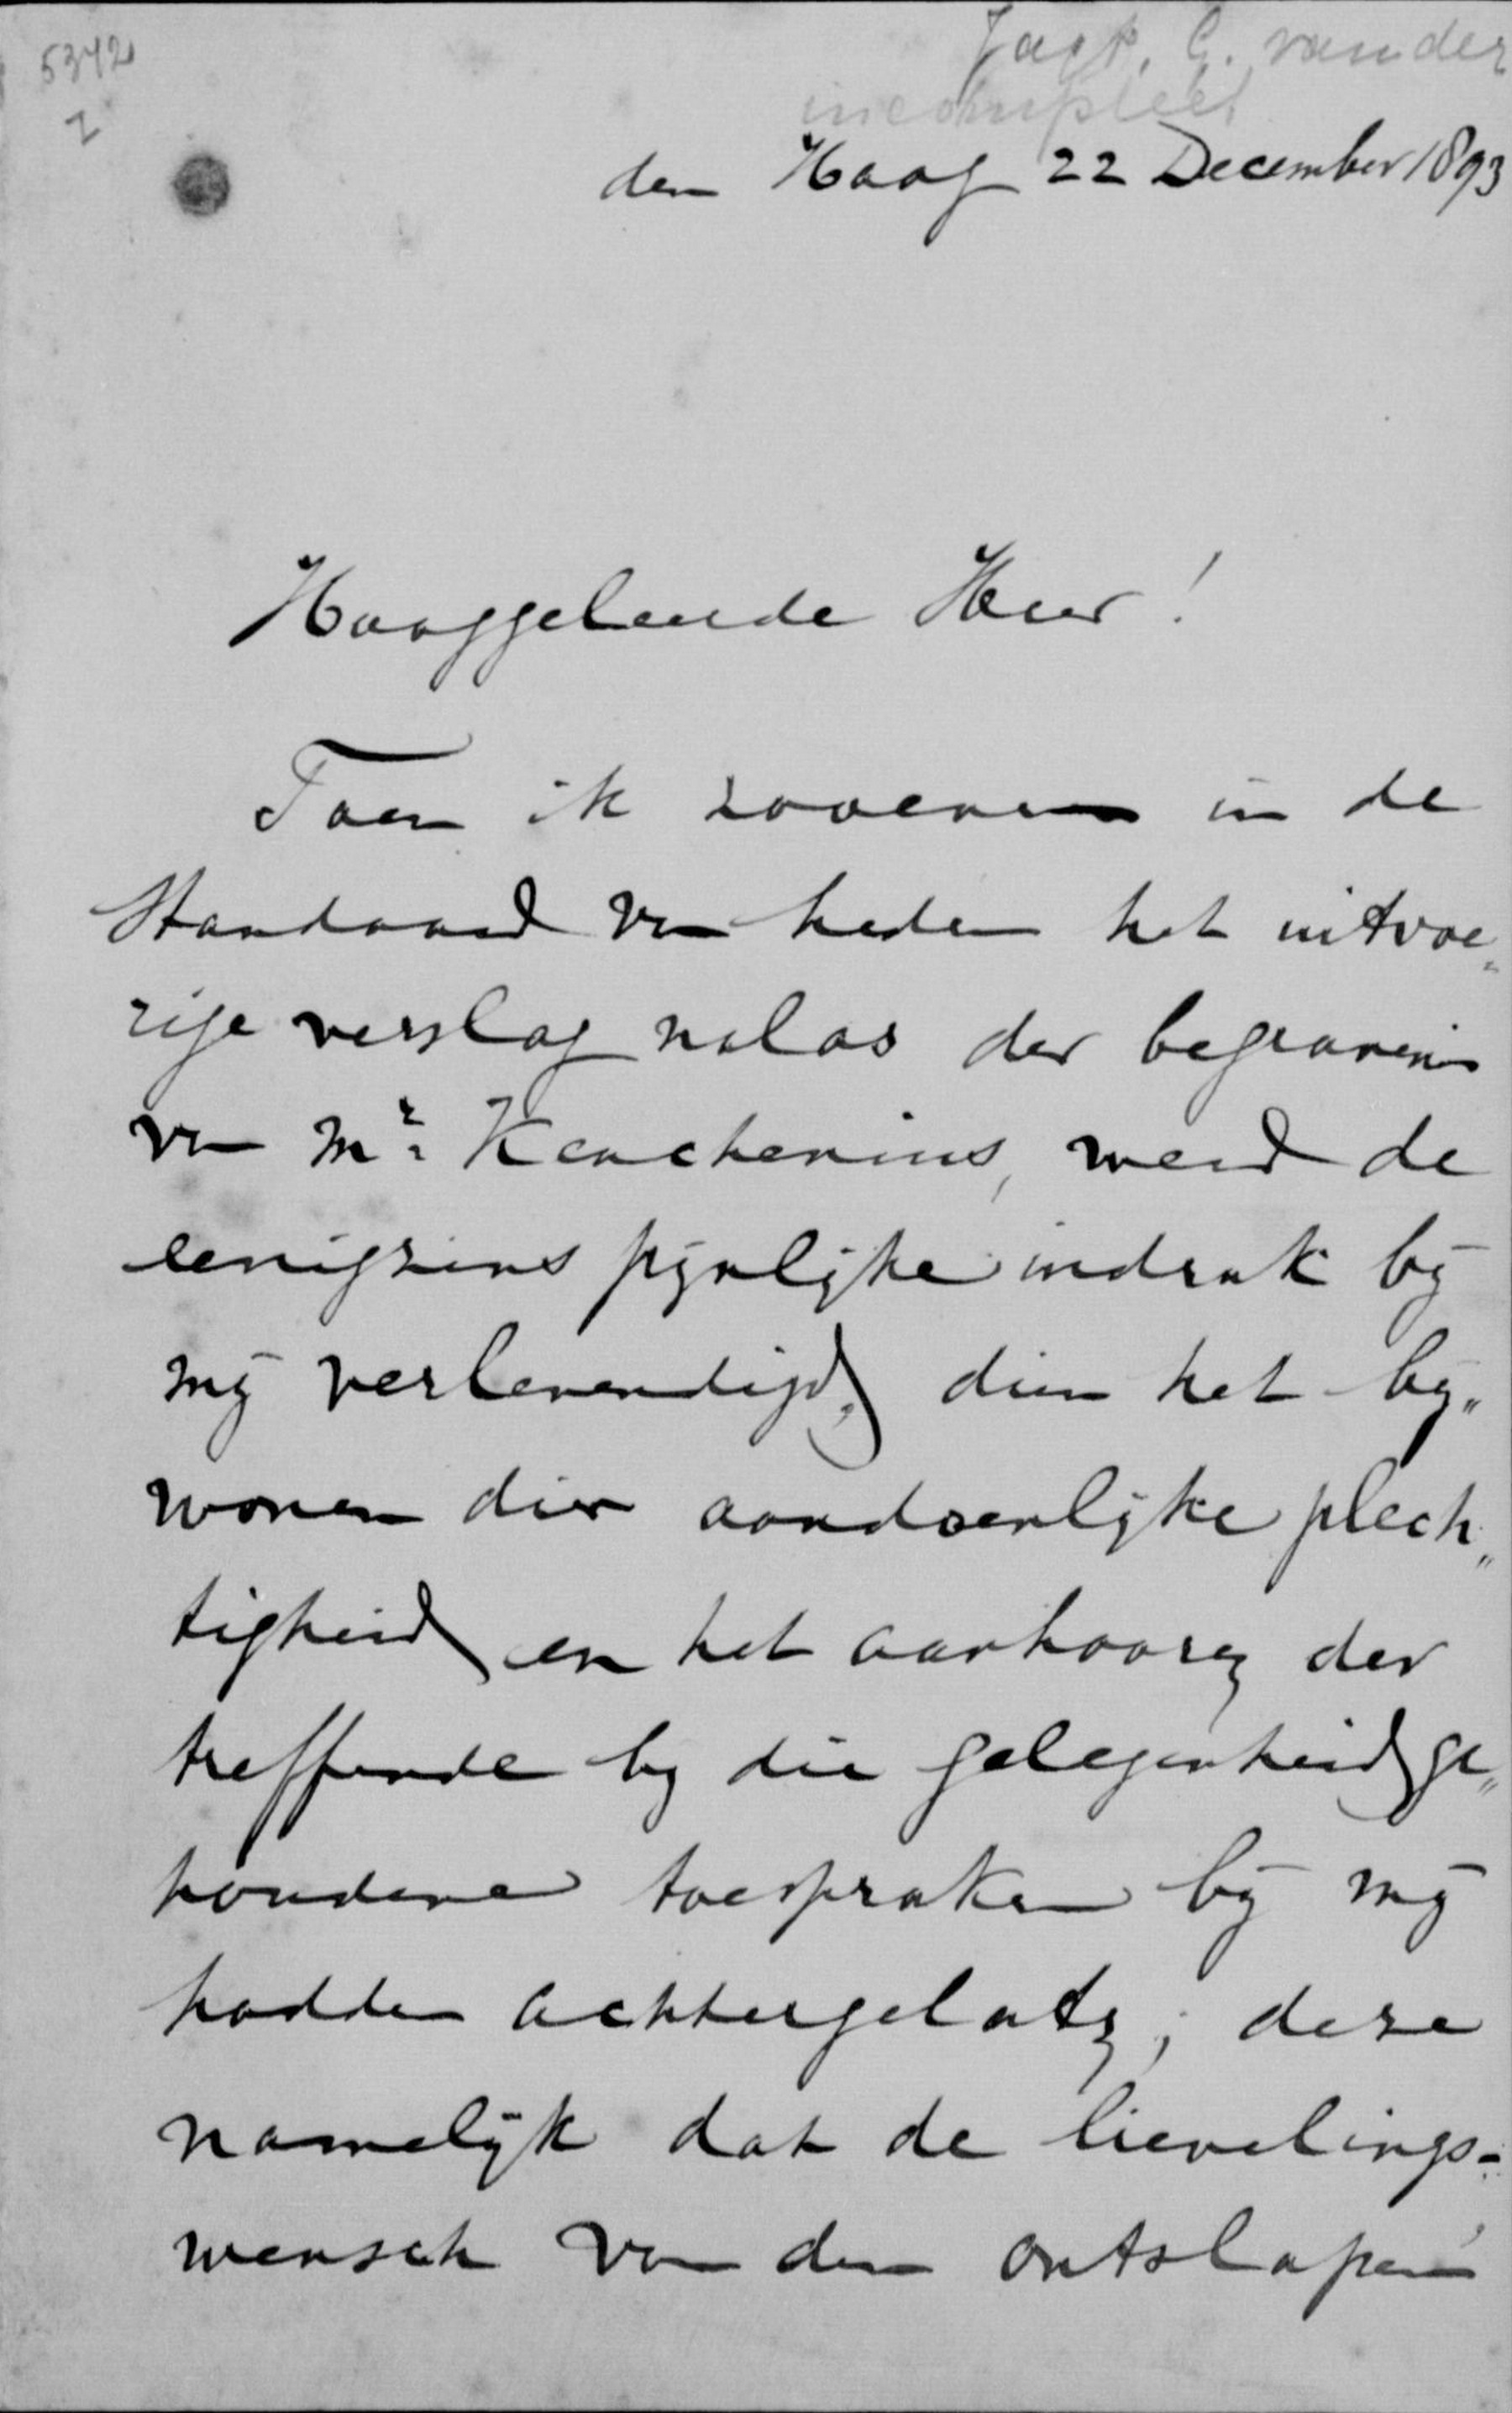 5342
Jagt, G. van der
incompleet
den Haag 22 December 1893
Hooggeleerde Heer!
Toen ik zooeven in de
Standaard van heden het uitvoe„
rige verslag nalas der begravenis
van Mr. Keuchenius, werd de
eenigzins pijnlijke indruk bij
mij verlevendigd, dien het bij„
wonen dier aandoenlijke plech„
tigheid en het aanhooren der
treffende bij die gelegenheid ge„
houdene toespraken bij mij
hadden achtergelaten; deze
namelijk dat de lievelings-
wensch van den ontslapen